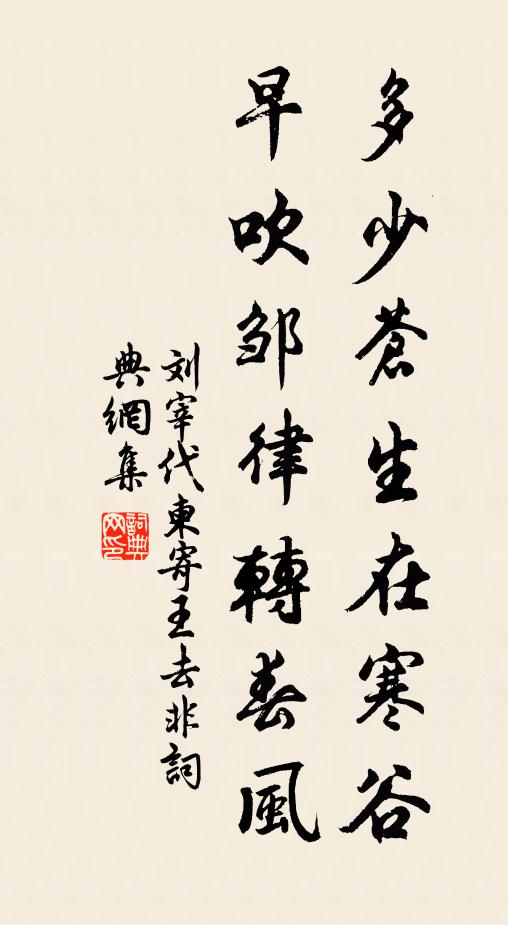 多少蒼生在寒谷
早吹邹律轉春風
刘宰代東寄王去非詞
典網集
詞典網印